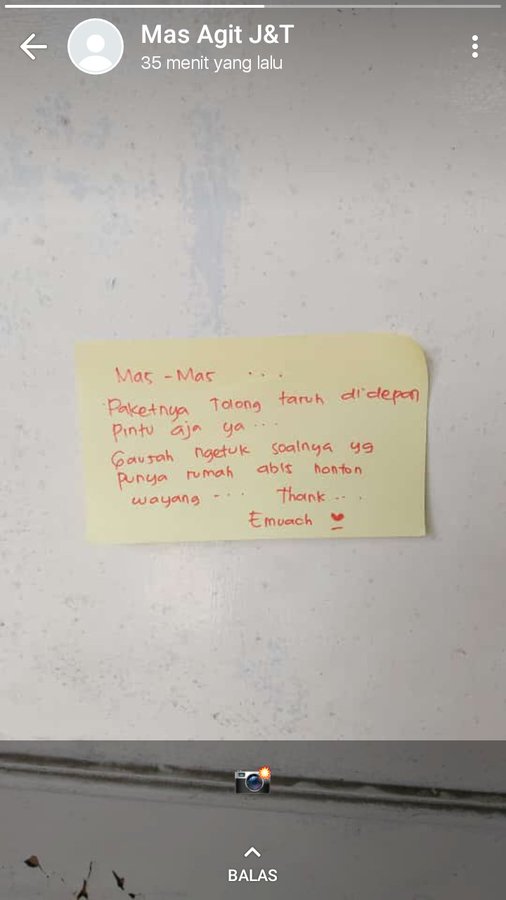 Mas Agit J&T
35 menit yang lalu
Mas - Mas ...
Paketnya Tolong taruh didepan
pintu aja ya ...
Gausah ngetuk soalnya yg
punya rumah abis nonton
wayang - ... Thank ...
Emuach
BALAS